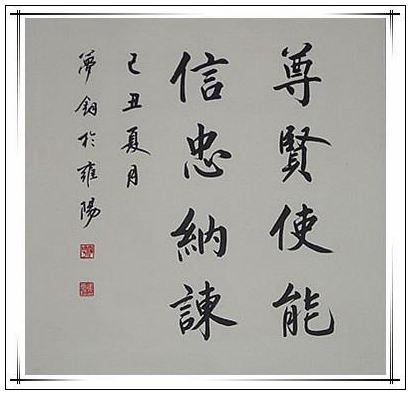 尊賢使能
信忠納諫
己丑夏月
夢鈞於雍陽